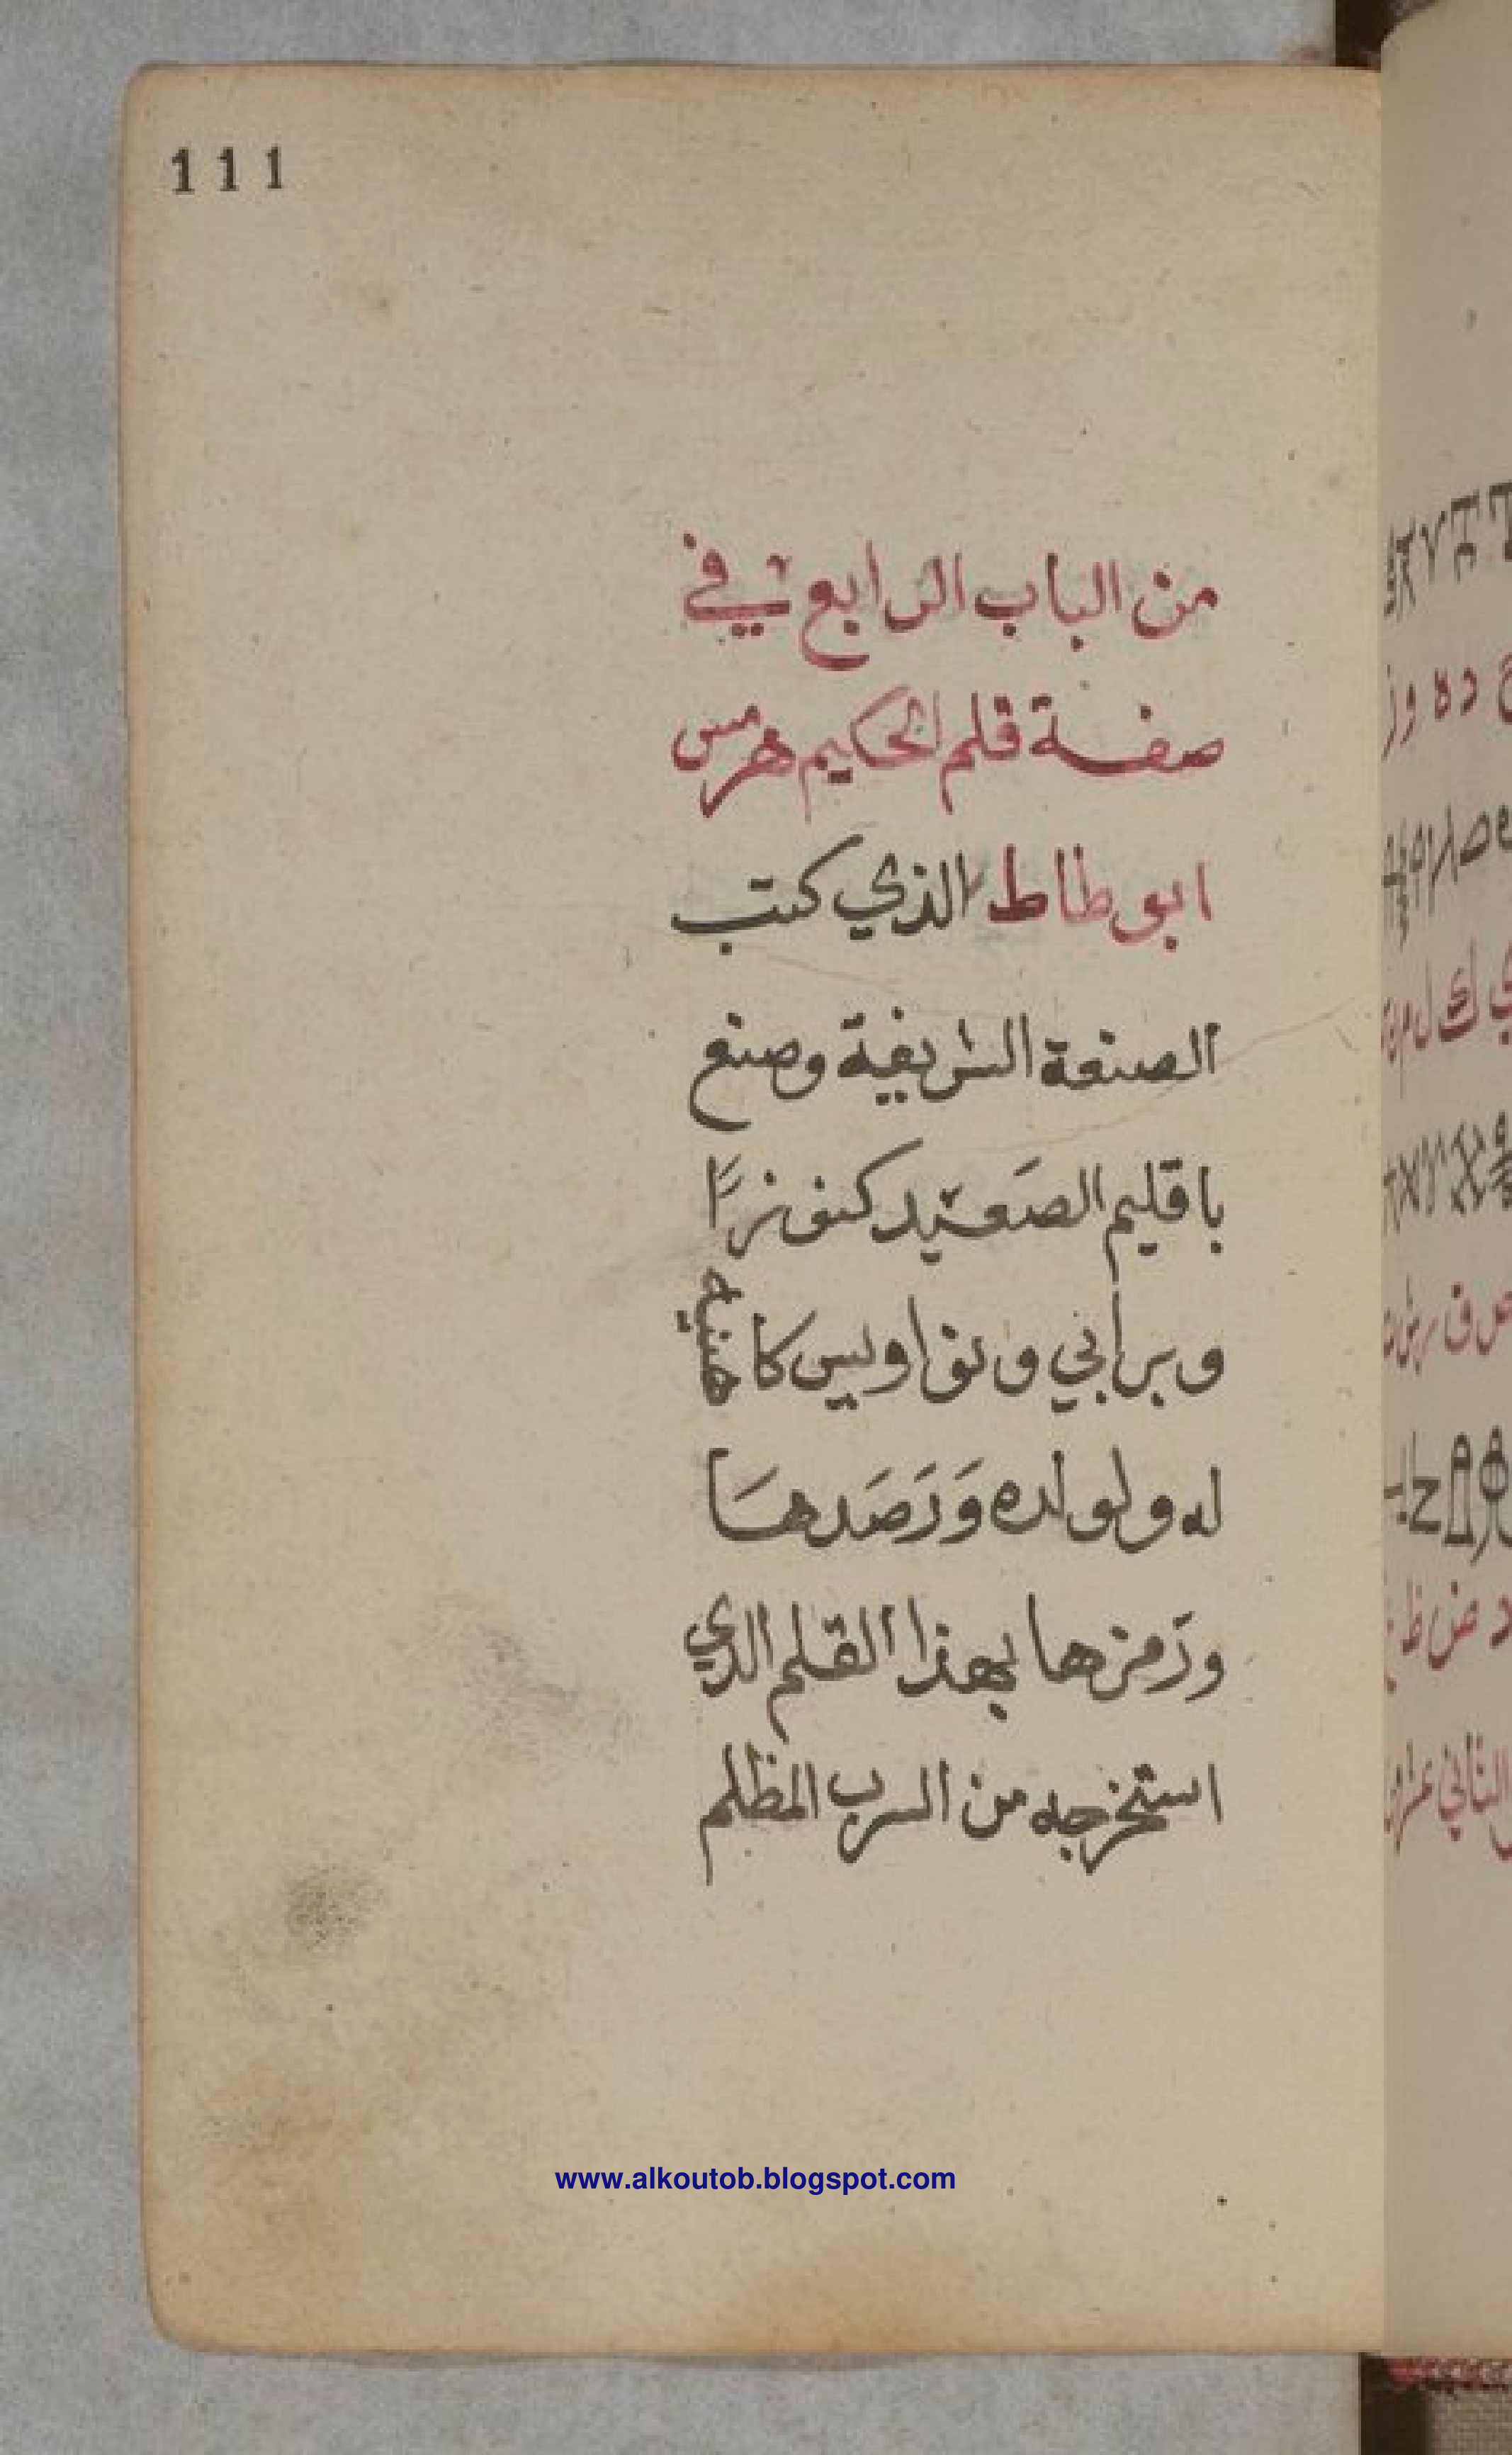 111
من الباب الرابع في
صفة قلم الحكيم هرمس
ابوطاط الذي كتب
الصنعة الشريفة وصنع
باقليم الصَعيد كنوزًا
وبرابي ونواويس كا
له ولولده وَرَصَدهَا
ورَمزها بهذا القلم الذي
استخرجه من السرب المظلم
www.alkoutob.blogspot.com